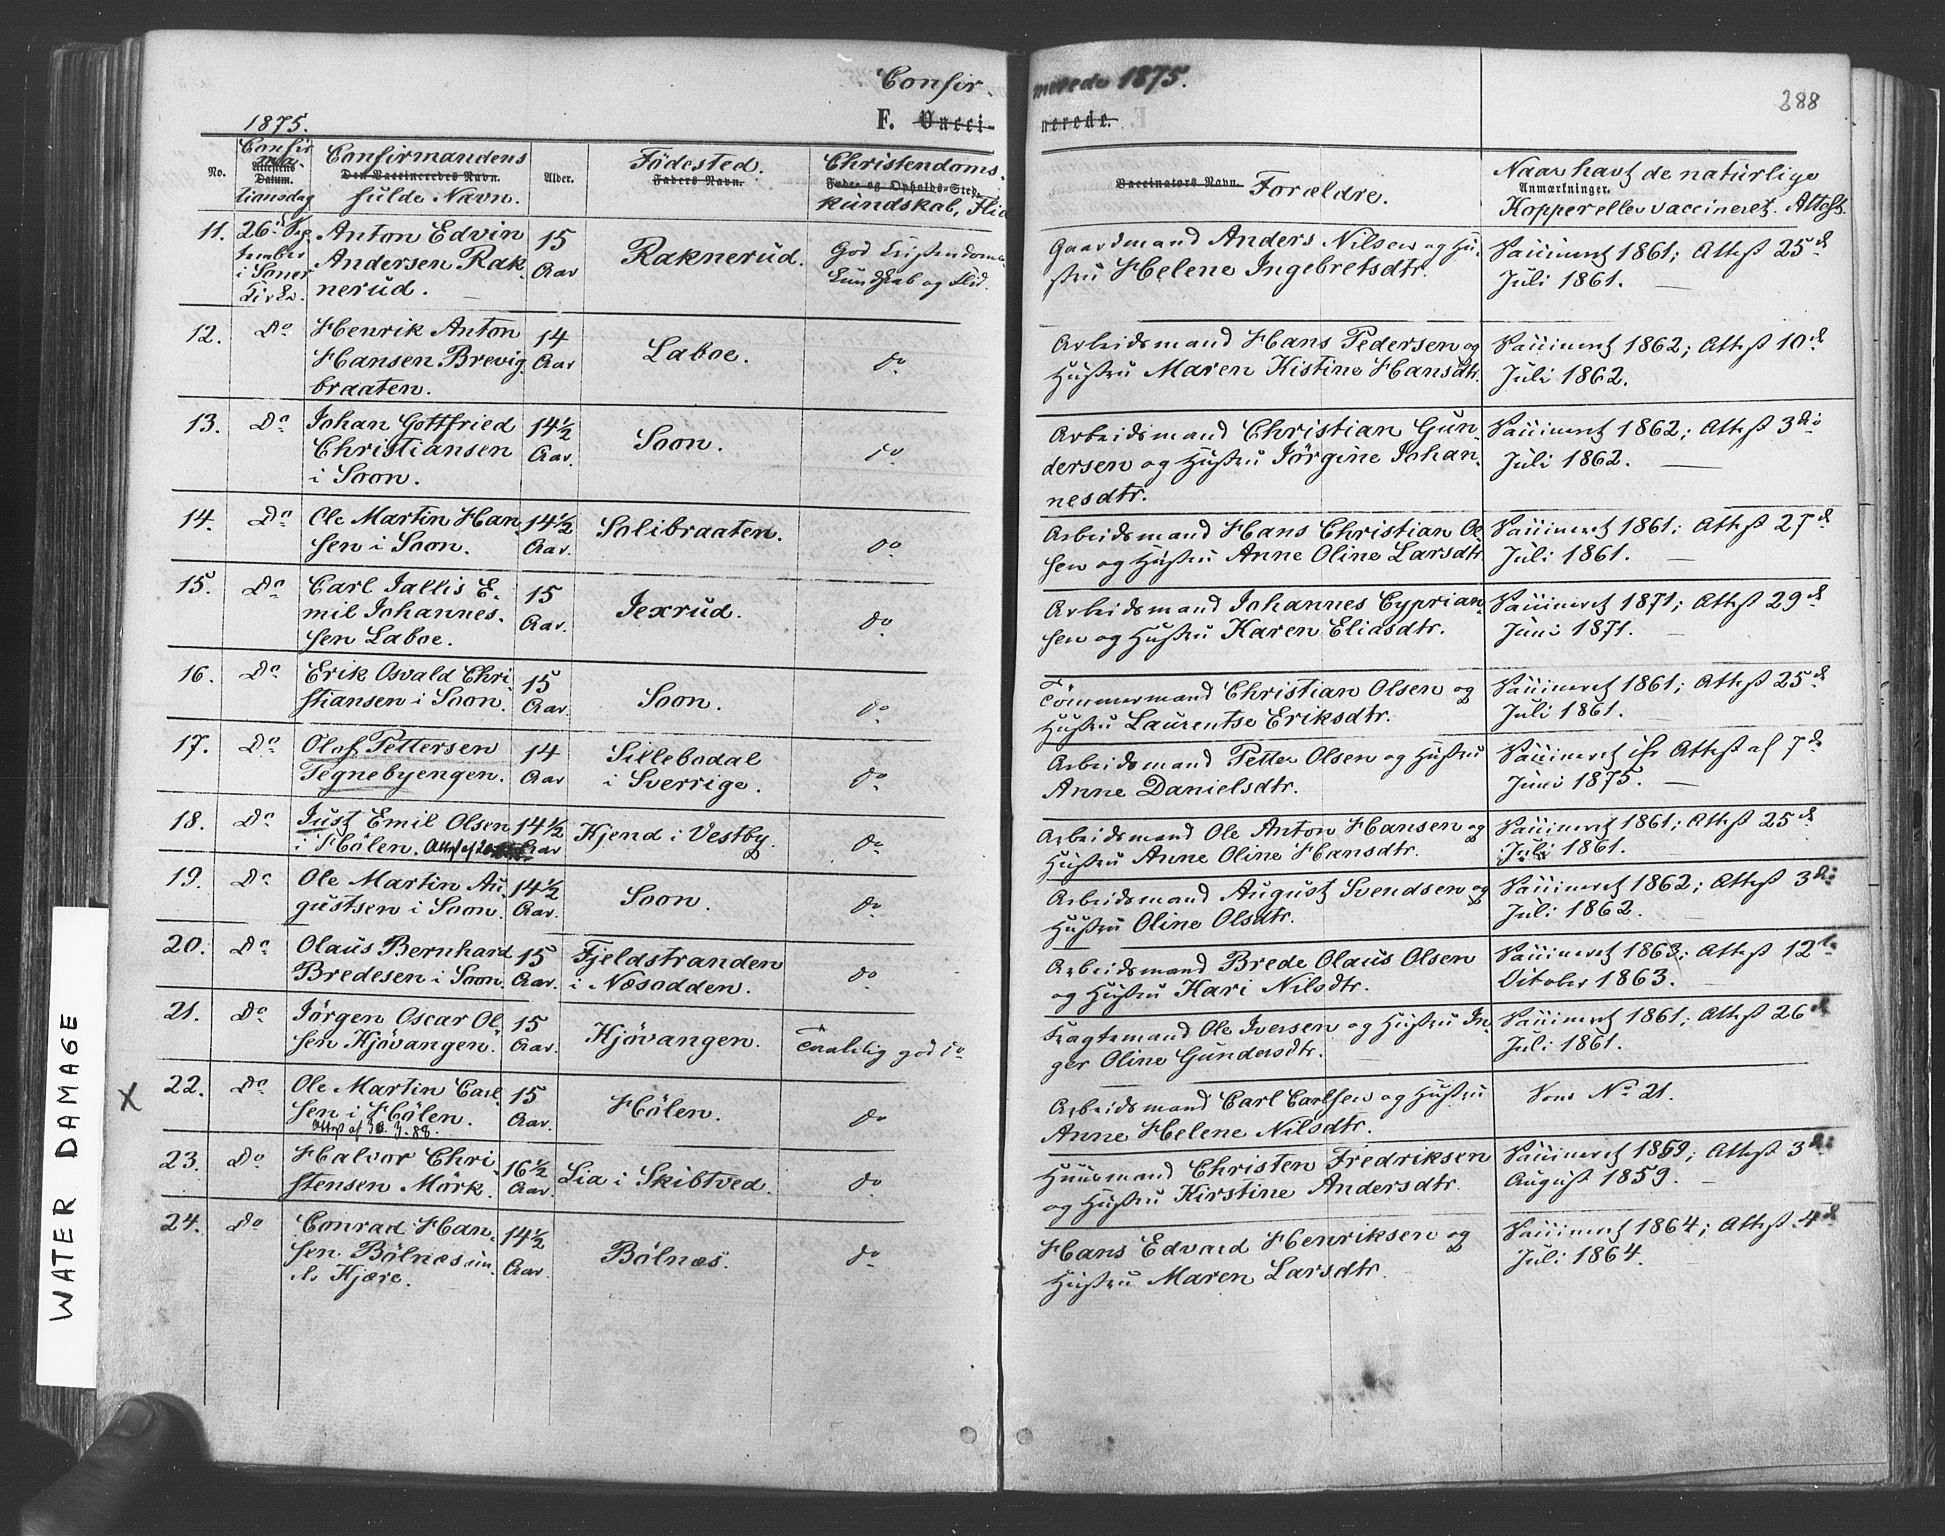 Confir-
merede 1875.
388
1875.
F. Vacci-
nerede.
No.
Confir
ma-
Attestens
Datum.
tionsdag
Confirmandens
Den Vaccineredes Navn.
fulde Navn.
Alder.
Fødested.
Faders Navn.
Christendoms-
Føde- og Opholds-Sted.
kundskab, Flid
Vaccinators Navn. Forældre.
Naar havt de naturlige
Anmærkninger.
Kopper eller vaccineret. Attest.
11. 26de Sep
tember
i Soner
Kirke.
Anton Edvin
Andersen Rak
nerud.
15
Aar
Raknerud.
God Christendoms
Kundskab og Flid.
Gaardmand Anders Nilsen og Hu-
stru Helene Ingebretsdtr.
Vaccineret 1861; Attest 25de
Juli 1861.
12. Do
Henrik Anton
Hansen Brevig
braaten.
14
Aar
Laboe.
do
Arbeidsmand Hans Pedersen og
Hustru Maren Kistine Hansdtr.
Vaccineret 1862; Attest 10de
Juli 1862.
13. Do
Johan Gottfried
Christiansen
i Soon.
14½
Aar.
Soon.
do
Arbeidsmand Christian Gun-
dersen og Hustru Jørgine Johan-
nesdtr.
Vaccineret 1862; Attest 3die
Juli 1862.
14. Do
Ole Martin Han
sen i Soon.
14½
Aar.
Solibraaten.
do
Arbeidsmand Hans Christian Ol
sen og Hustru Anne Oline Larsdtr.
Vaccineret 1861; Attest 27de
Juli 1861.
15. Do
Carl Jallis E-
mil Johannes-
sen Laboe.
15
Aar.
Jexrud.
do
Arbeidsmand Johannes Cyprian-
sen og Hustru Karen Eliasdtr.
Vaccineret 1871; Attest 29de
Juni 1871.
16. Do
Erik Osvald Chri-
stiansen i Soon.
15
Aar.
Soon.
do
Tømmermand Christian Olsen og
Hustru Laurentse Eriksdtr.
Vaccineret 1861; Attest 25de
Juli 1861.
17. Do
Olof Pettersen
Tegnebyengen.
14
Aar
Sillebodal
i Sverrige.
do
Arbeidsmand Petter Olsen og Hustru
Anne Danielsdtr.
Vaccineret ifr Attest af 7de
Juni 1875.
18. Do
Just Emil Olsen
i Hölen. Attest af
14½
Aar
Kjend i Vestby.
do
Arbeidsmand Ole Anton Hansen og
Hustru Anne Oline Hansdtr.
Vaccineret 1861; Attest 25de
Juli 1861.
19. Do
Ole Martin Au
gustsen i Soon.
14½
Aar.
Soon.
do
Arbeidsmand August Svendsen og
Hustru Oline Olsdtr.
Vaccineret 1862; Attest 3die
Juli 1862.
20. Do
Olaus Bernhard
Bredesen i Soon.
15
Aar.
Fjeldstranden
i Næsodden.
do
Arbeidsmand Brede Olaus Olsen
og Hustru Kari Nilsdtr.
Vaccineret 1863; Attest 12te
October 1863.
21. Do
Jørgen Oscar Ol-
sen Kjövangen.
15
Aar.
Kjövangen.
Taalelig god do
Fragtemand Ole Iversen og Hustru In
ger Oline Gundersdtr.
Vaccineret 1861; Attest 26de
Juli 1861.
X
22. Do
Ole Martin Carl
sen i Hölen.
Attest af 30.3.88.
15
Aar.
Hölen.
do
Arbeidsmand Carl Carlsen og Hustru
Anne Helene Nilsdtr.
Som No 21.
23. Do
Halvor Chri
stensen Mörk.
16½
Aar.
Lia i Skibtved.
do
Huusmand Christen Fredriksen
og Hustru Kirstine Andersdtr.
Vaccineret 1859; Attest 3die
August 1859.
24. Do
Conrad Han-
sen Bölnes un-
der Kjære.
14½
Aar.
Bölnæs.
do
Hans Edvard Henriksen og
Hustru Maren Larsdtr.
Vaccineret 1864; Attest 4de
Juli 1864.
WATER DAMAGE